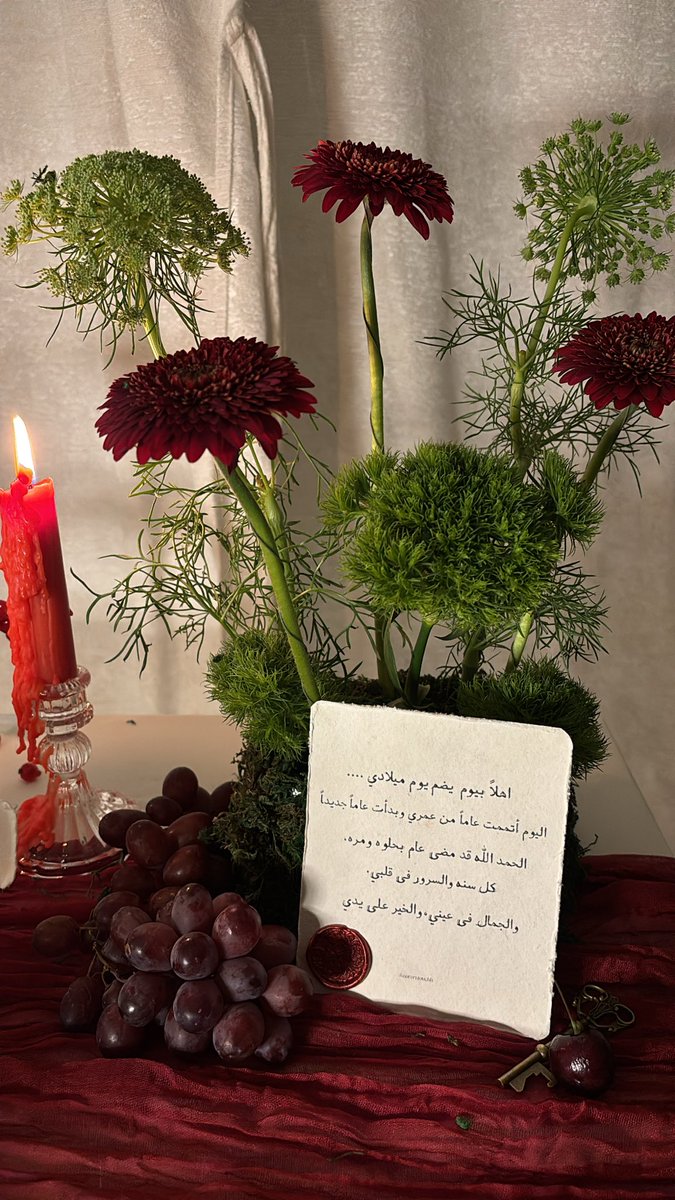 اهلاً بيوم يضم يوم ميلادي ....
اليوم أتممت عاماً من عمري وبدأت عاماً جديداً
الحمد الله قد مضى عام بحلوه ومره.
كل سنه والسرور في قلبي.
والجمال في عيني،والخير على يدي